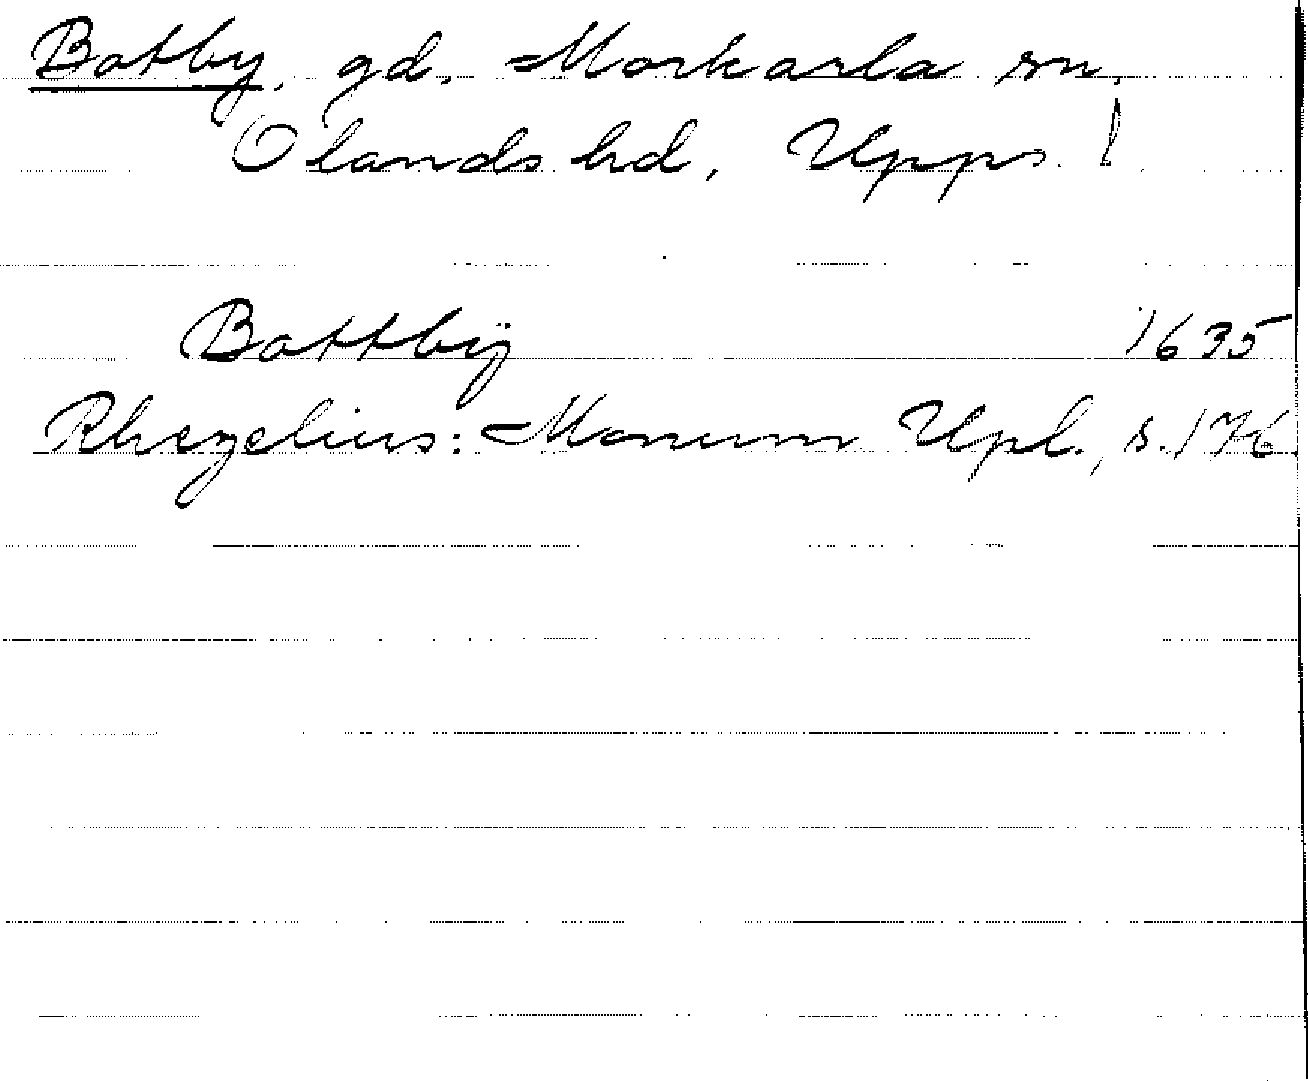 Botby, gd, Morkarla sn,
Olands hd, Upps. l
Bottbÿ 1635
Rhezelius: Monum Upl., s. 176